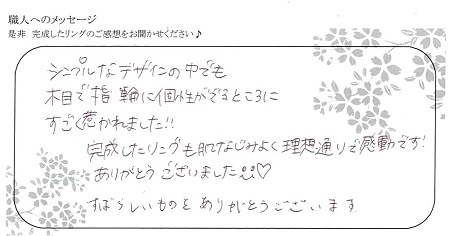 職人へのメッセージ
是非 完成したリングのご感想をお聞かせください♪
シンプルなデザインの中でも
木目で指輪に個性がでるところに
すごく惹かれました!!
完成したリングも肌なじみよく理想通りで感動です!
ありがとうございました♡
すばらしいものをありがとうございます